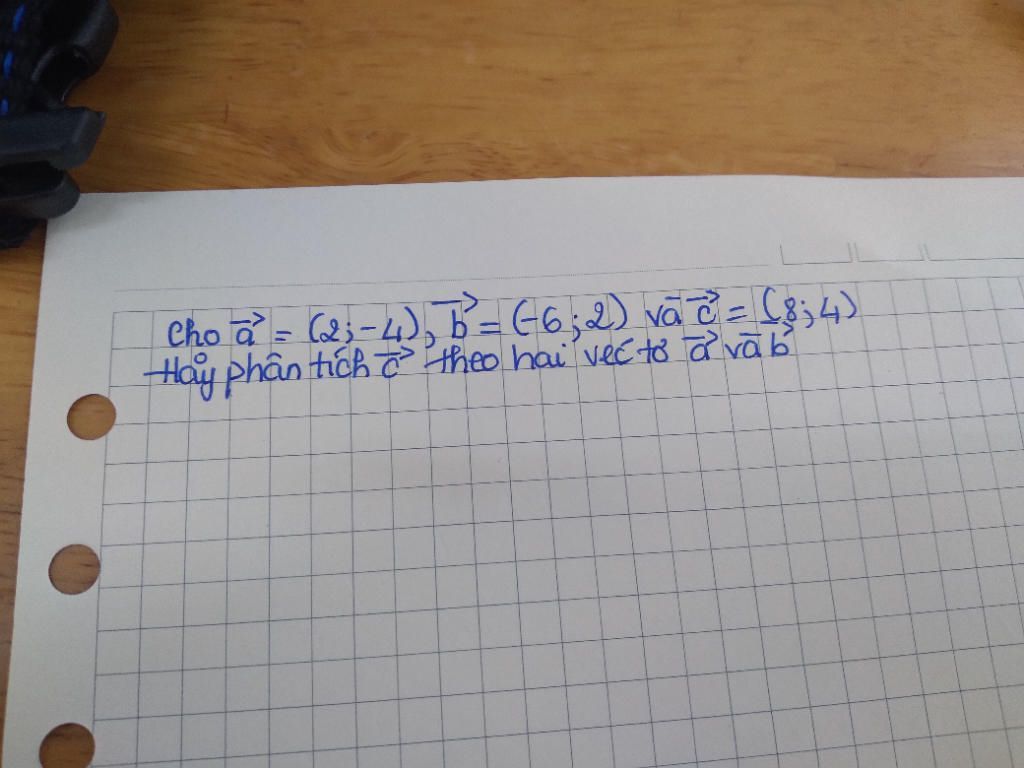 Cho a⃗ = (2;-4), b⃗ = (-6;2) và c⃗ = (8;4)
Hãy phân tích c⃗ theo hai vec tơ a⃗ và b⃗